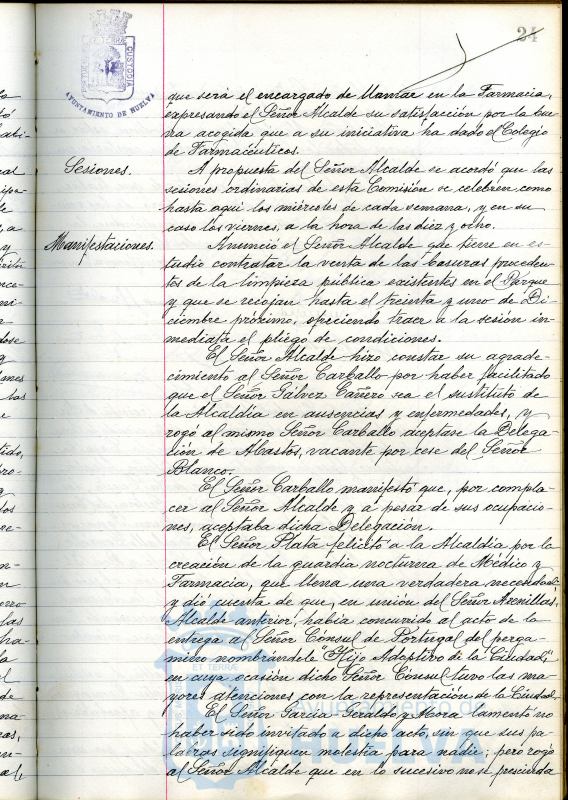 24
PORTUS MARIS ET TERRAE CUSTODIA
AYUNTAMIENTO DE HUELVA
que será el encargado de llamar en la Farmacia,
expresando el Señor Alcalde su satisfacción por la bue
na acogida que a su iniciativa ha dado el Colegio
de Farmacéuticos.
Sesiones.
A propuesta del Señor Alcalde se acordó que las
sesiones ordinarias de esta Comisión se celebren como
hasta aquí los miércoles de cada semana, y en su
caso los viernes, a la hora de las diez y ocho.
Manifestaciones.
Anunció el Señor Alcalde que tiene en es-
tudio contratar la venta de las basuras proceden
tes de la limpieza pública existentes en el Parque
y que se recojan hasta el treinta y uno de Di-
ciembre próximo, ofreciendo traer a la sesión in-
mediata el pliego de condiciones.
El Señor Alcalde hizo constar su agrade-
cimiento al Señor Carballo por haber facilitado
que el Señor Gálvez Cañero sea el sustituto de
la Alcaldía en ausencias y enfermedades, y
rogó al mismo Señor Carballo aceptase la Delega-
ción de Abastos, vacante por cese del Señor
Blanco.
El Señor Carballo manifestó que, por compla-
cer al Señor Alcalde y a pesar de sus ocupacio-
nes, aceptaba dicha Delegación.
El Señor Plata felicitó a la Alcaldía por la
creación de la guardia nocturna de Médico y
Farmacia, que llena una verdadera necesidad
y dió cuenta de que, en unión del Señor Arenillas,
Alcalde anterior, había concurrido al acto de la
entrega al Señor Cónsul de Portugal del perga-
mino nombrándole "Hijo Adoptivo de la Ciudad",
en cuya ocasión dicho Señor Cónsul tuvo las ma-
yores atenciones con la representación de la Ciudad.
El Señor García-Geraldo y Mora lamentó no
haber sido invitado a dicho acto, sin que sus pa-
labras signifiquen molestia para nadie; pero rogó
al Señor Alcalde que en lo sucesivo no se prescinda
Ayuntamiento de
HUELVA